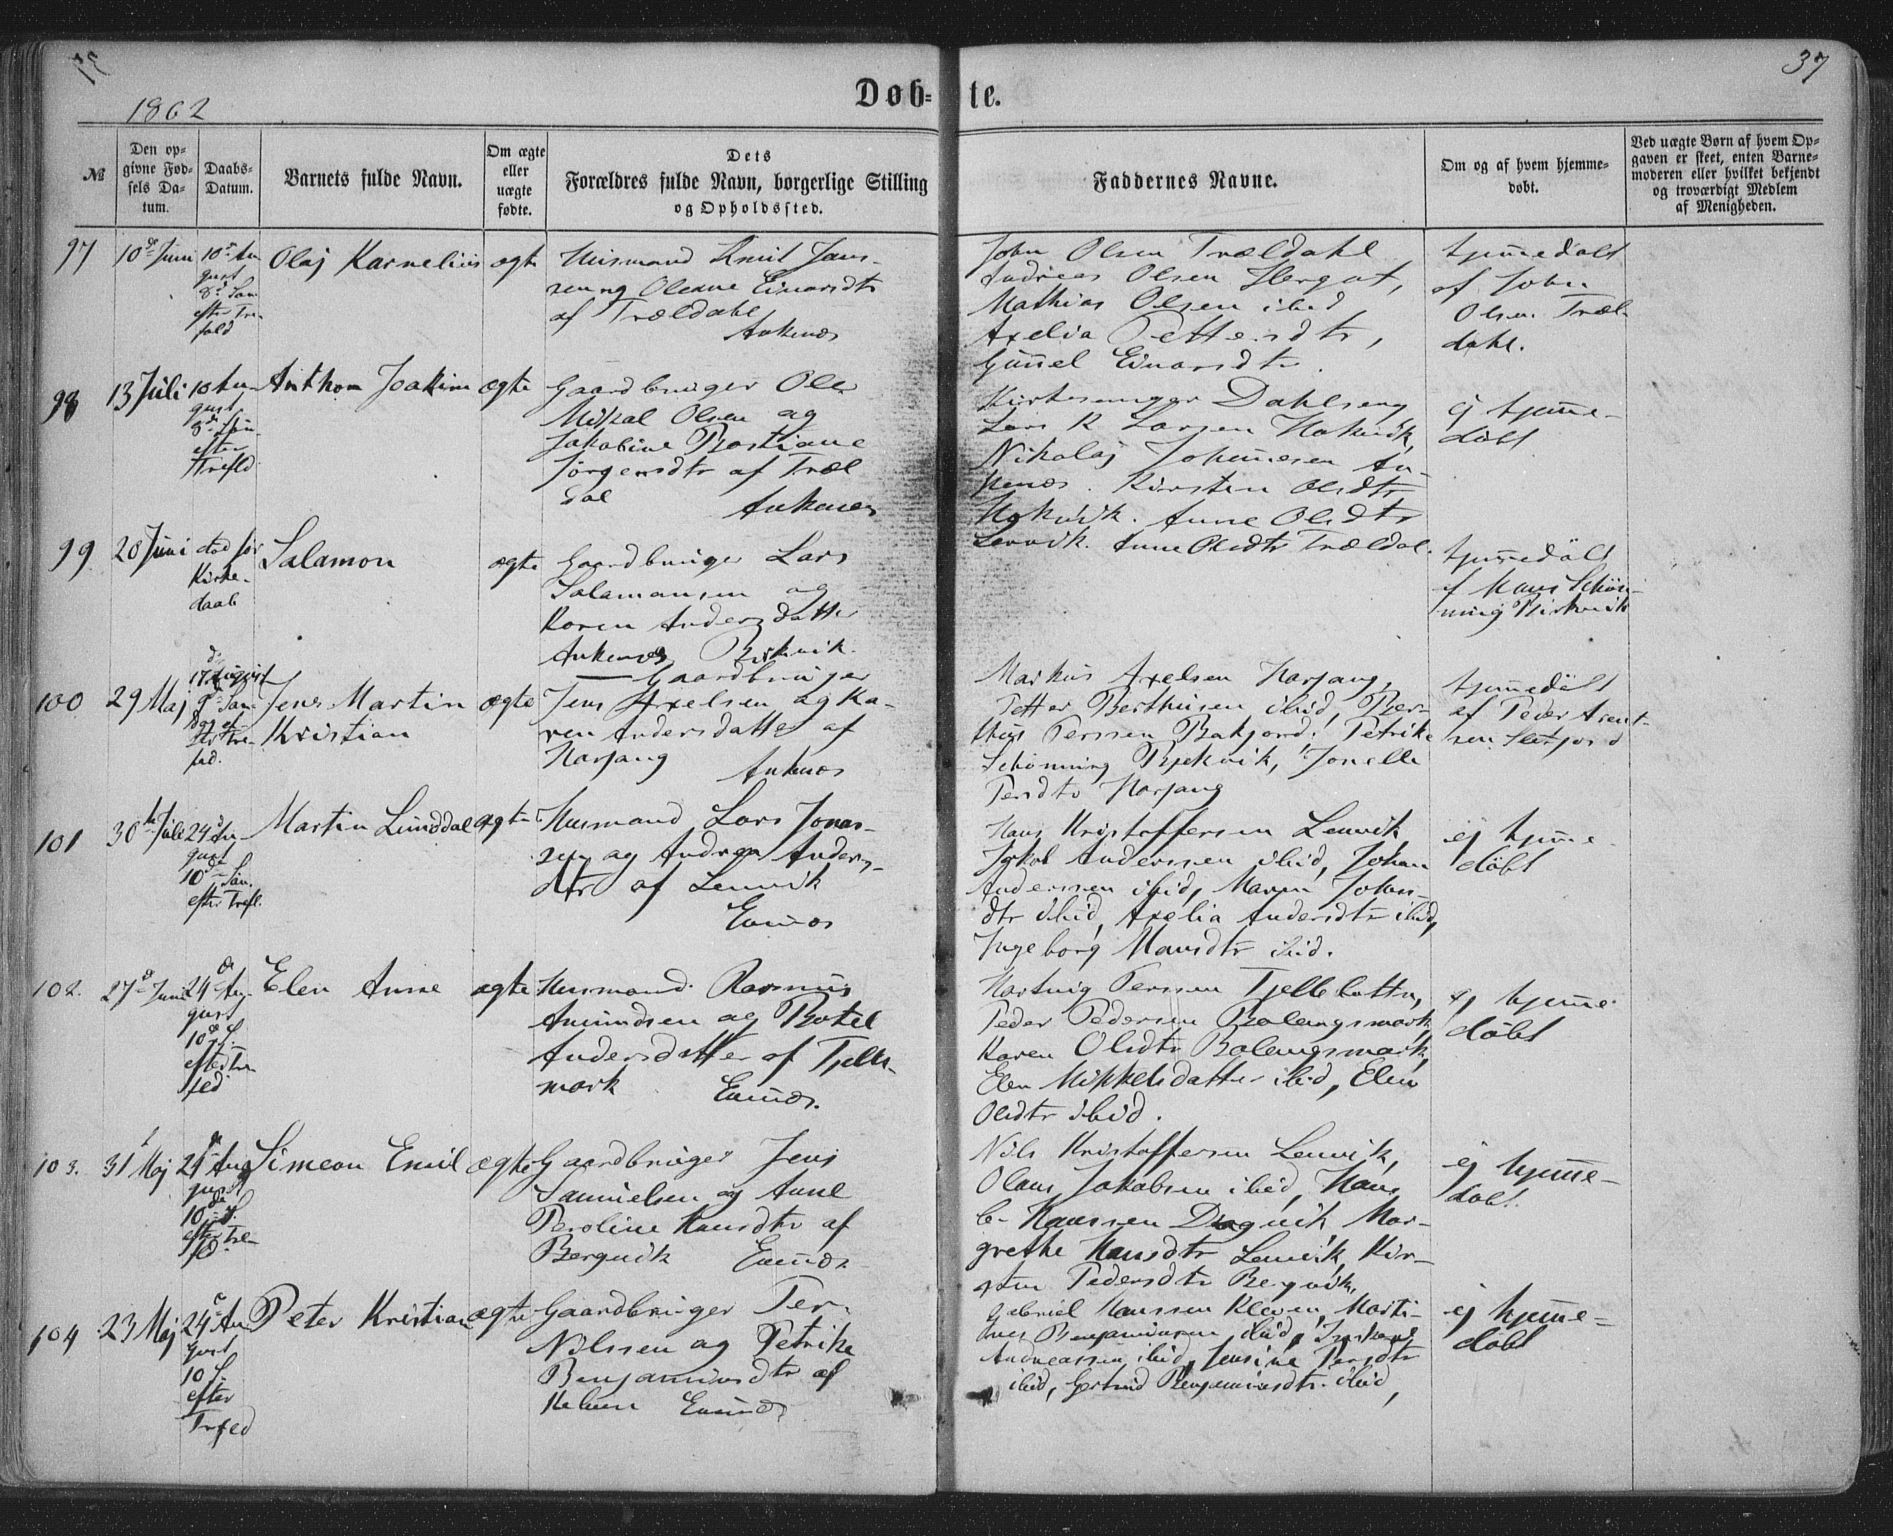 37
1862
Døb=te.
37
№
Den op=
givne Fød=
sels Da=
tum.
Daabs=
Datum.
Barnets fulde Navn.
Om ægte
eller
uægte
fødte.
Dets
Forældres fulde Navn, borgerlige Stilling
og Opholdssted.
Faddernes Navne.
Om og af hvem hjemme=
døbt.
Ved uægte Børn af hvem Op=
gaven er skeet, enten Barne=
moderen eller hvilket bekjendt
og troværdigt Medlem
af Menigheden.
97
10de Juni
10de Au
gust
8de Søn
efter Tre
fold
Olaj Karnelius
ægte
Husmand Knut Jans-
sen og Oleane Einarsdtr
af Trældahl
Ankenæs
John Olsen Trældahl
Andreas Olsen Hergot,
Mathias Olsen ibid
Axelia Pettersdtr,
Gunnel Einarsdtr.
hjemmedøbt
af John
Olsen Træl-
dahl.
98
13 Juli
10 Au-
gust
8de Søn-
efter
Trefld.
Anthon Joakim
ægte
Gaardbruger Ole
Mikal Olsen og
Jakobine Bastiane
Jørgensdtr af Træl
dal
Ankenæs
Kirkesanger Dahlseng
Lars K Larsen Hakvik,
Nikolaj Johannesen An-
kenæs. Kirsten Olsdtr
Hakvik. Anne Olsdtr
Lenvik. Anne Olsdtr Trældal.
ej hjemme-
døbt
99
20 Juni
død før
Kirke-
daab
Salamon
ægte
Gaardbruger Lars
Salamonsen og
Karen Andersdatter
Ankenæs Bjerkvik.
hjemmedøbt
af Hans Schøn-
ning Bjerkvik
100
29 Maj
17de August
9de Søn
dag ef-
ter Tre-
fld.
Jens Martin
Kristian
ægte
Gaardbruger
Jens Axelsen og Ka-
ren Andersdatter af
Harjang
Ankenæs
Markus Axelsen Harjang,
Petter Berthusen ibid, Ber-
thus Perssen Bukjord. Petrike
Schønning Bjekvik, Jonelle
Persdtr Harjang
hjemmedøbt
af Peder Arent-
sen
101
30te Juli
24de Au
gust
10de Søn.
efter Trefl.
Martin Lunddal
ægte
Husmand Lars Jonas-
sen og Andrea Anders-
dtr af Lenvik
Evenæs
Hans Kristoffersen Lenvik,
Jakob Anderssen ibid, Johan
Anderssen ibid, Maren Johans-
dtr ibid, Axelia Andersdtr ibid,
Ingeborg Hansdtr ibid.
ej hjemme
døbt
102.
27de Juni
24de Au-
gust
10de S.
efter Tre
fld.
Elen Anne
ægte
Husmand Rasmus
Amundsen og Botel
Andersdatter af Tjelle-
mark
Evenæs.
Hartvig Perssen Tjellebotten,
Peder Pedersen Balangsmark,
Karen Olsdtr Balangsmark,
Elen Mikkelsdatter ibid, Elen
Olsdtr ibid.
ej hjemme
døbt
103.
31te Maj
24de Au
gust
10de S.
efter Tre-
fld.
Simeon Emil
ægte
Gaardbruger Jens
Samuelsen og Anne
Peroline Hansdtr af
Bergvik
Evenæs
Nils Kristoffersen Lenvik,
Olaus Jakobsen ibid, Hans
C. Hanssen Dragvik, Mar-
grethe Hansdtr Lenvik, Kir-
sten Pedersdtr Bergvik,
ej hjemme-
døbt.
104
23 Maj
24de Au
gust
10 S.
efter
Trfld
Peter Kristian
ægte
Gaardbruger Per
Nilssen og Petrike
Benjaminsdtr af
Kleven Evenæs
Gabriel Hanssen Kleven, Marti-
nus Benjaminsen ibid,
Andreassen ibid, Jensine Persdtr
ibid, Gertrud Benjaminsdtr. ibid,
ej hjemme-
døbt